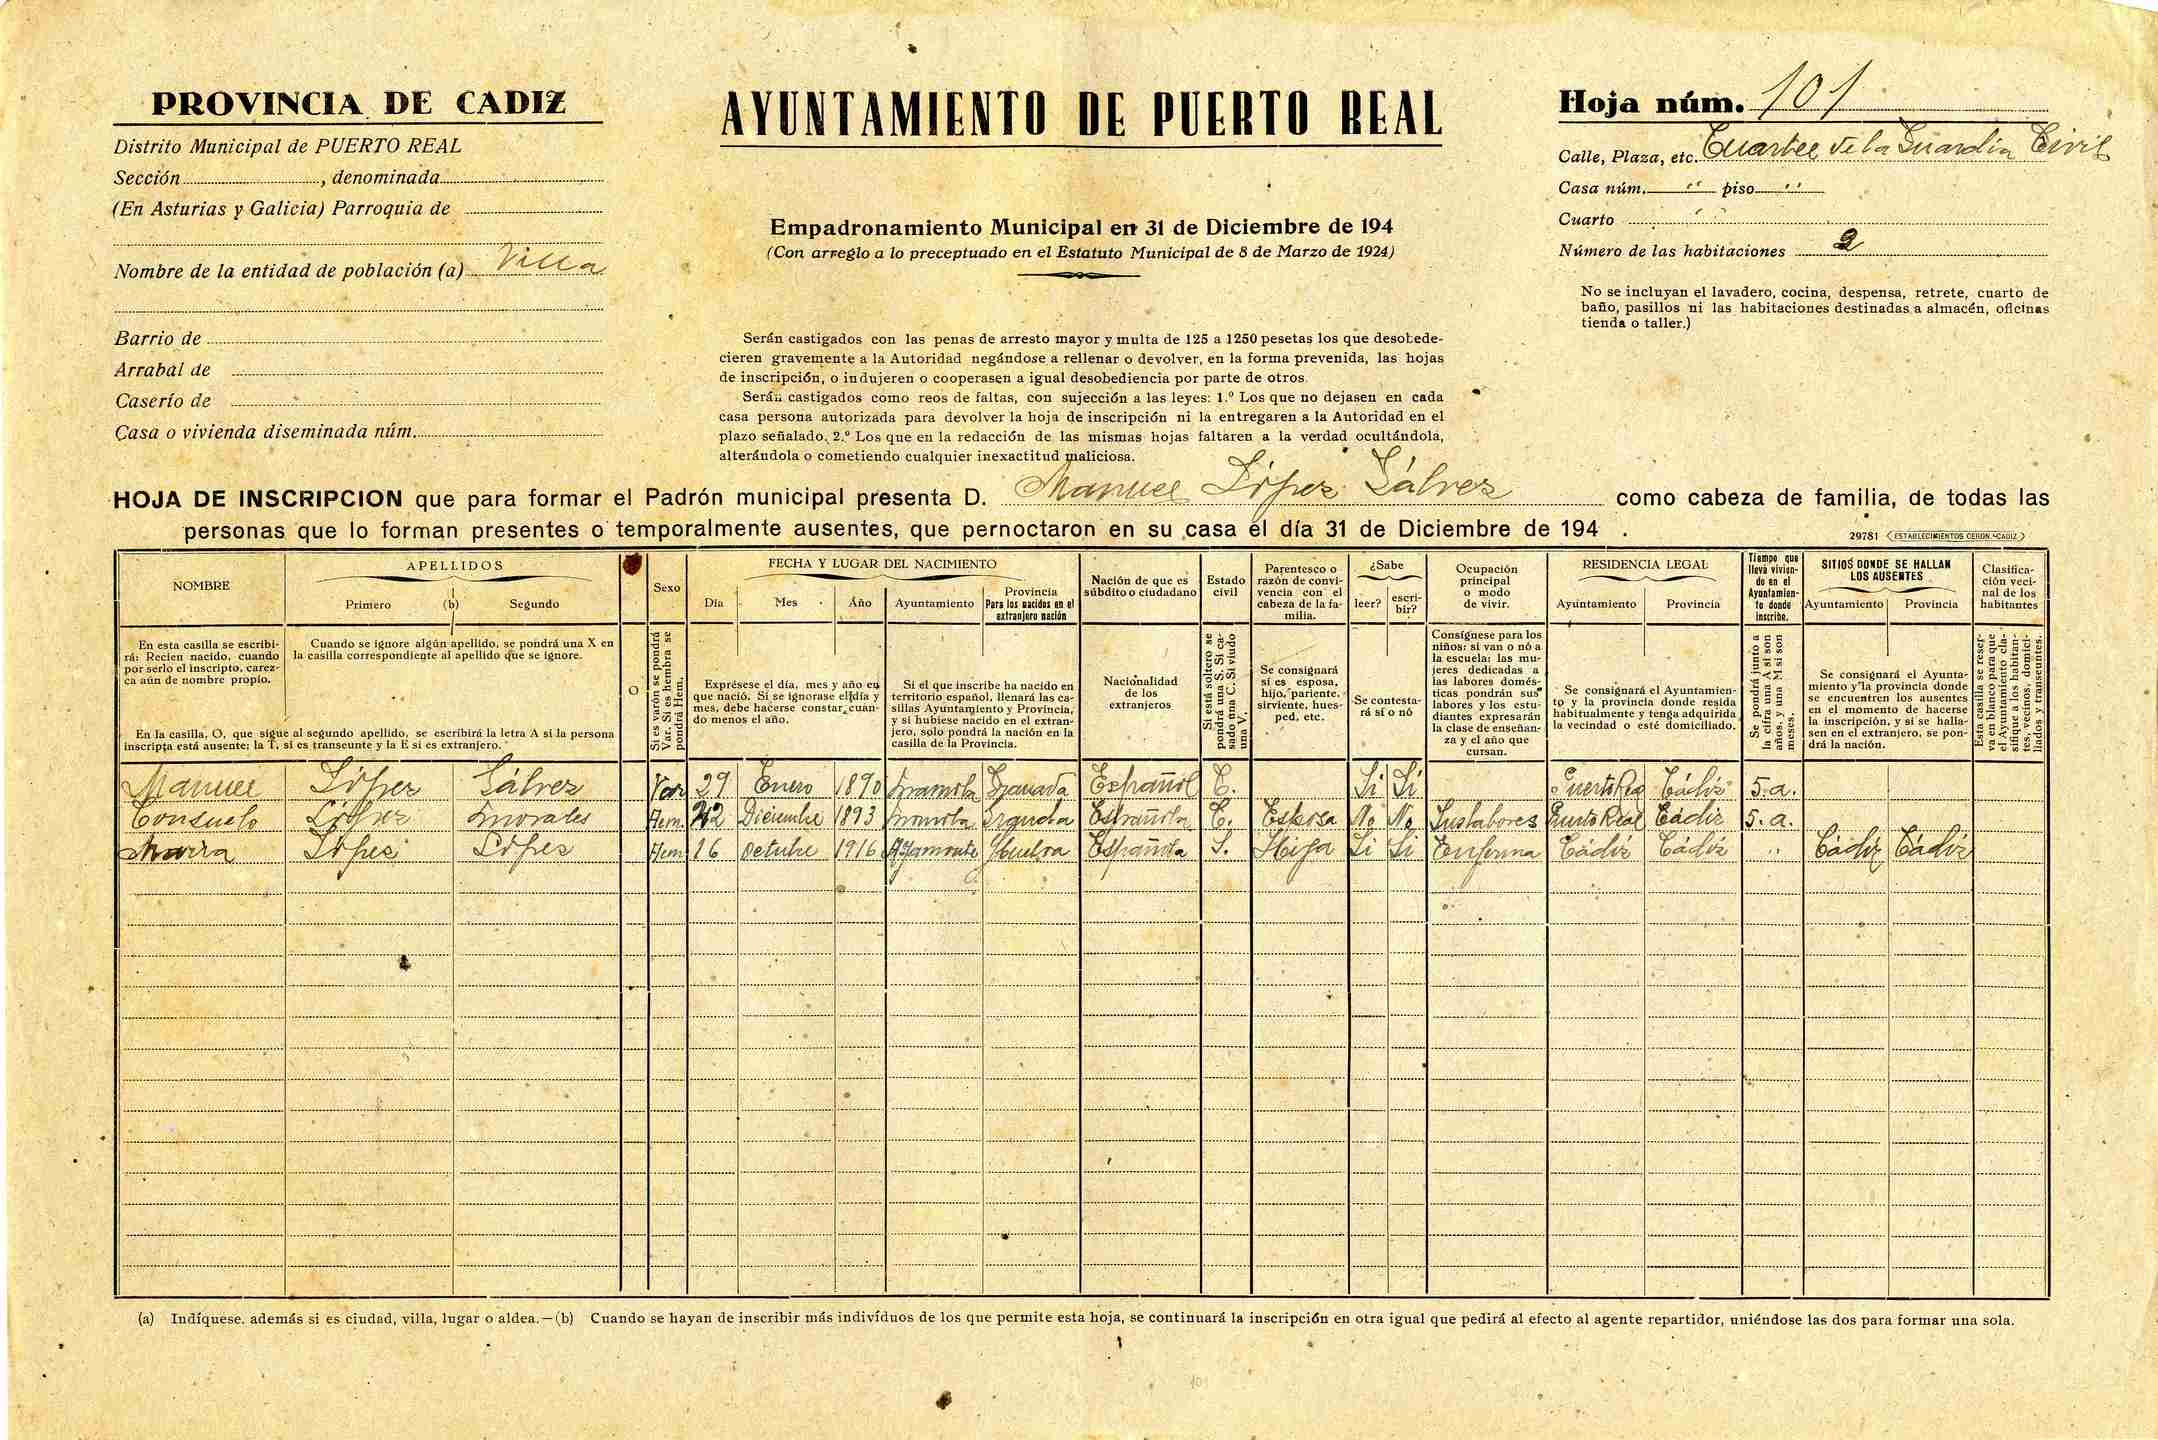 PROVINCIA DE CADIZ
Distrito Municipal de PUERTO REAL
Sección, denominada
(En Asturias y Galicia) Parroquia de
Nombre de la entidad de población (a) Villa
Barrio de
Arrabal de
Caserío de
Casa o vivienda diseminada núm.
AYUNTAMIENTO DE PUERTO REAL
Empadronamiento Municipal en 31 de Diciembre de 194
(Con arreglo a lo preceptuado en el Estatuto Municipal de 8 de Marzo de 1924)
Serán castigados con las penas de arresto mayor y multa de 125 a 1250 pesetas los que desobede-
cieren gravemente a la Autoridad negándose a rellenar o devolver, en la forma prevenida, las hojas
de inscripción, o indujeren o cooperasen a igual desobediencia por parte de otros.
Serán castigados como reos de faltas, con sujección a las leyes: 1.º Los que no dejasen en cada
casa persona autorizada para devolver la hoja de inscripción ni la entregaren a la Autoridad en el
plazo señalado. 2.º Los que en la redacción de las mismas hojas faltaren a la verdad ocultándola,
alterándola o cometiendo cualquier inexactitud maliciosa.
Hoja núm. 101
Calle, Plaza, etc. Cuartel de la Guardia Civil
Casa núm. " piso "
Cuarto "
Número de las habitaciones 2
No se incluyan el lavadero, cocina, despensa, retrete, cuarto de
baño, pasillos ni las habitaciones destinadas a almacén, oficinas
tienda o taller.)
HOJA DE INSCRIPCION que para formar el Padrón municipal presenta D. Manuel López Gálvez como cabeza de familia, de todas las
personas que lo forman presentes o temporalmente ausentes, que pernoctaron en su casa el día 31 de Diciembre de 194 .
29781 ESTABLECIMIENTOS CERON.-CADIZ
NOMBRE
APELLIDOS
Primero (b) Segundo
Sexo
FECHA Y LUGAR DEL NACIMIENTO
Día Mes Año Ayuntamiento
Provincia
Para los nacidos en el
extranjero nación
Nación de que es
súbdito o ciudadano
Estado
civil
Parentesco o
razón de convi-
vencia con el
cabeza de la fa-
milia.
¿Sabe
leer? escri-
bir?
Ocupación
principal
o modo
de vivir.
RESIDENCIA LEGAL
Ayuntamiento Provincia
Tiempo que
lleva vivien-
do en el
Ayuntamien-
to donde
inscribe.
SITIOS DONDE SE HALLAN
LOS AUSENTES
Ayuntamiento Provincia
Clasifica-
ción veci-
nal de los
habitantes
En esta casilla se escribi-
rá: Recien nacido, cuando
por serlo el inscripto, carez-
ca aún de nombre propio.
Cuando se ignore algún apellido, se pondrá una X en
la casilla correspondiente al apellido que se ignore.
En la casilla, O, que sigue al segundo apellido, se escribirá la letra A si la persona
inscripta está ausente; la T, si es transeunte y la E si es extranjero.
O
Si es varón se pondrá
Var. Si es hembra se
pondrá Hem.
Exprésese el día, mes y año en
que nació. Si se ignorase el día y
mes, debe hacerse constar cuan-
do menos el año.
Si el que inscribe ha nacido en
territorio español, llenará las ca-
sillas Ayuntamiento y Provincia,
y si hubiese nacido en el extran-
jero, solo pondrá la nación en la
casilla de la Provincia.
Nacionalidad
de los
extranjeros
Si está soltero se
pondrá una S. Si ca-
sado una C. Si viudo
una V.
Se consignará
si es esposa,
hijo, pariente,
sirviente, hues-
ped, etc.
Se contesta-
rá sí o nó
Consígnese para los
niños: si van o nó a
la escuela; las mu-
jeres dedicadas a
las labores domés-
ticas pondrán sus
labores y los estu-
diantes expresarán
la clase de enseñan-
za y el año que
cursan.
Se consignará el Ayuntamien-
to y la provincia donde resida
habitualmente y tenga adquirida
la vecindad o esté domiciliado.
Se pondrá junto a
la cifra una A si son
años, y una M si son
meses.
Se consignará el Ayunta-
miento y la provincia donde
se encuentren los ausentes
en el momento de hacerse
la inscripción, y si se halla-
sen en el extranjero, se pon-
drá la nación.
Esta casilla se reser-
va en blanco para que
el Ayuntamiento cla-
sifique a los habitan-
tes, vecinos, domici-
liados y transeuntes.
Manuel López Gálvez Var 29 Enero 1890 Granada Español C. Si Si Puerto Real Cádiz 5.a.
Consuelo López Morales Hem. Diciembre 1893 Granada Española C. Esposa No No Sus labores Puerto Real Cádiz 5.a.
María López López Hem 16 Octubre 1916 Ayamonte Huelva Española S. Hija Si Si Enferma Cádiz Cádiz " Cádiz Cádiz
(a) Indíquese. además si es ciudad, villa, lugar o aldea.—(b) Cuando se hayan de inscribir más indivíduos de los que permite esta hoja, se continuará la inscripción en otra igual que pedirá al efecto al agente repartidor, uniéndose las dos para formar una sola.
101